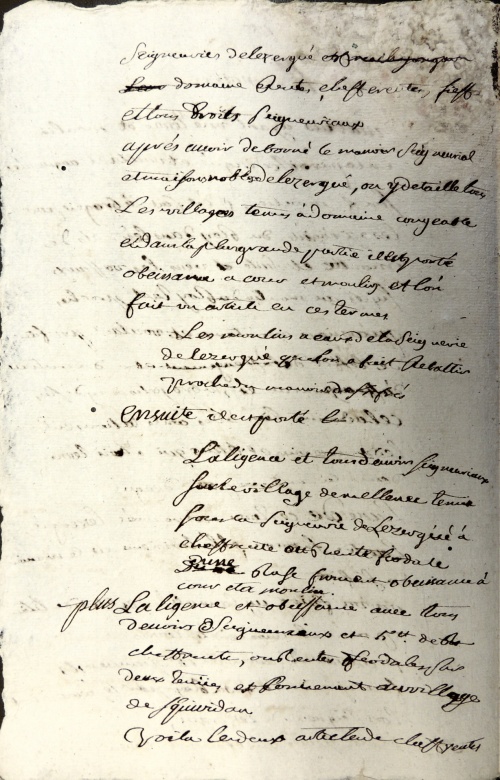 Seigneuries de lezergué
domaine Rentes, cheff rentes, fieffs
et tous droits Seigneuriaux
aprés avoir deborné le manoir Seigneurial
et maisons nobles de lezergué, on y detaille tous
Les villages tenus à domaine congeable
et dans la plus grande partie il est porté
obeissance a cour et moulin, et l'on
fait un article en ces termes
Les moulins a eaux de la Seigneurie
de lezergué que l'on a fait Rebattir
proche du manoir
ensuite il est porté
La ligence et tous devoirs Seigneuriaux
sur le village de mellenec tenu
sous la Seigneurie de Lezergué à
cheffrente ou Rente feodale
d'une Rase froment obeissance à
cour et a moulin.
plus La ligence et obeissance avec tous
devoirs Seigneuriaux et 5 tt de
cheffrente, ou Rentes feodales sur
deux tenües et
de Squividan
Voila les deux articles de cheffrentes